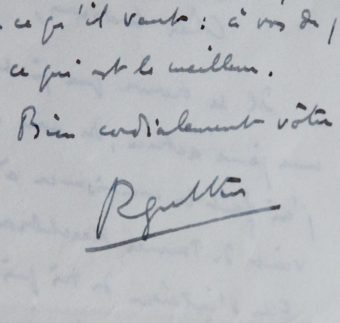 ce qu'il vaut : à vos
ce qui est le meilleur.
Bien cordialement vôtre